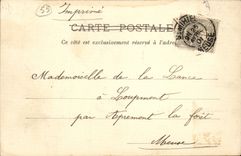 53
Imprimé
CARTE POSTALE
Ce côté est exclusivement réservé à l'adresse
Mademoiselle de la Lance
à Loupmont
par Apremont la forêt
Meuse